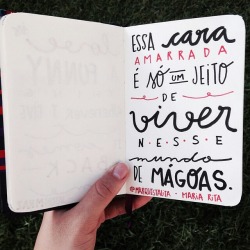 ESSA cara
AMARRADA
É SÓ UM JEITO
DE
viver
N·E·S·S·E
mundo
DE MÁGOAS.
@MARQUESTALITA - MARIA RITA